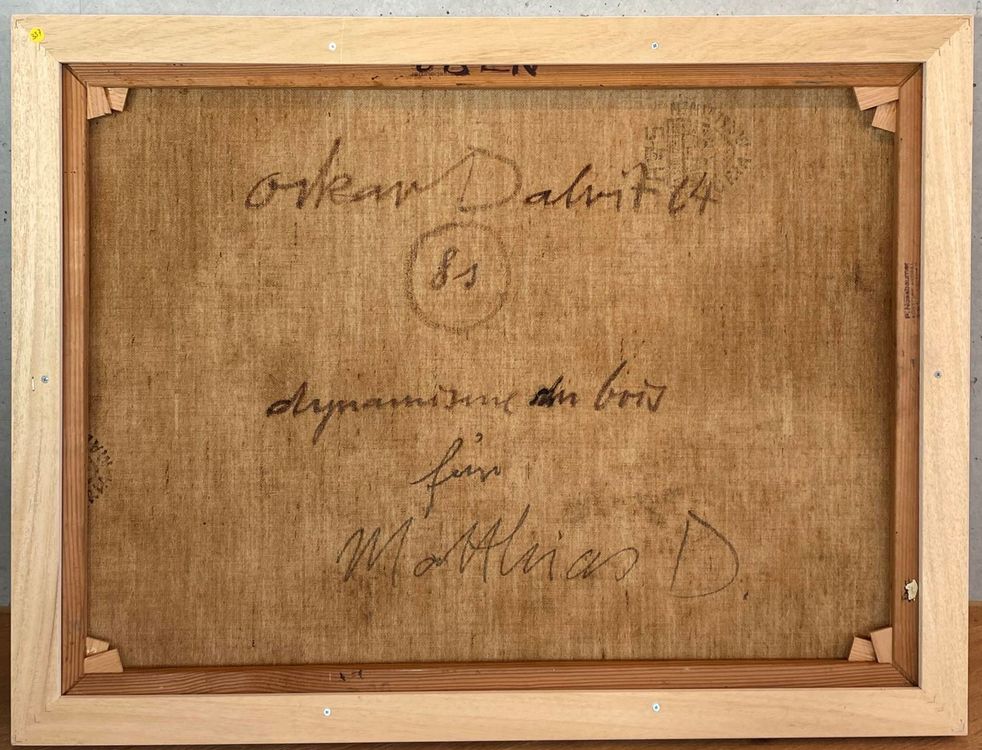 337
OBEN
oskar Dalvit 64
81
dynamisme du bois
für
Matthias D.